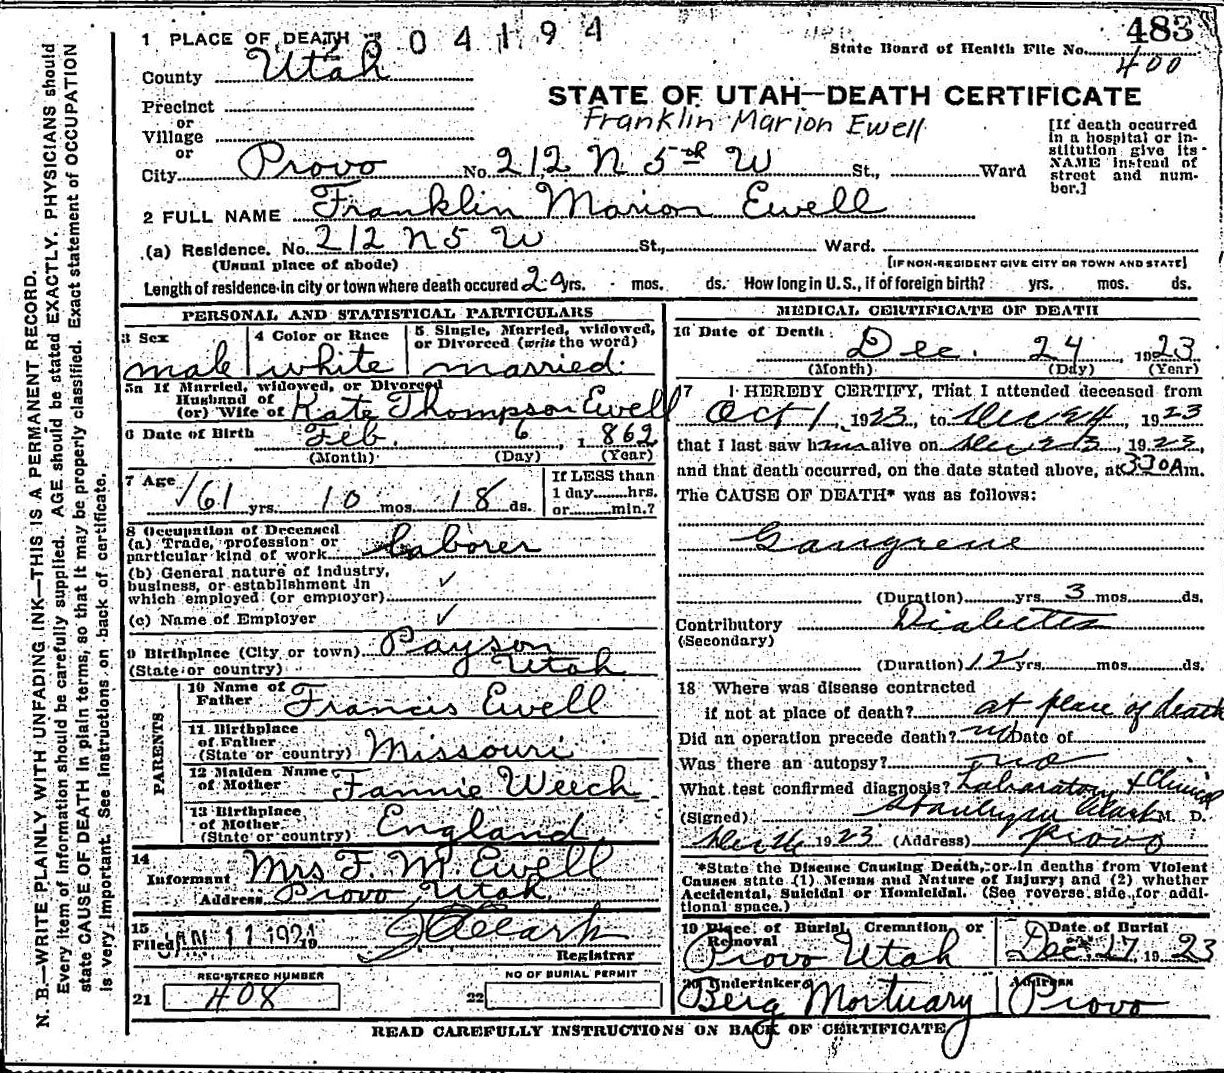 1 PLACE OF DEATH 2 0 4 1 9 4
State Board of Health File No. 483
400
County Utah
Precinct
or
Village
or
City Provo No. 212 N 5th W St., Ward
STATE OF UTAH—DEATH CERTIFICATE
Franklin Marion Ewell
[If death occurred
in a hospital or in-
stitution give its
NAME instead of
street and num-
ber.]
2 FULL NAME Franklin Marion Ewell
(a) Residence. No. 212 N 5 W St., Ward.
(Usual place of abode)
[IF NON-RESIDENT GIVE CITY OR TOWN AND STATE]
Length of residence in city or town where death occured 24 yrs. mos. ds. How long in U.S., if of foreign birth? yrs. mos. ds.
PERSONAL AND STATISTICAL PARTICULARS
3 Sex
male
4 Color or Race
white
5 Single, Married, widowed,
or Divorced (write the word)
married
5a If Married, widowed, or Divorced
Husband of
(or) Wife of Kate Thompson Ewell
6 Date of Birth Feb. 6, 1862
(Month) (Day) (Year)
7 Age 61 yrs. 10 mos. 18 ds.
If LESS than
1 day hrs.
or min.?
8 Occupation of Deceased
(a) Trade, profession or
particular kind of work Laborer
(b) General nature of industry,
business, or establishment in
which employed (or employer) ✓
(c) Name of Employer ✓
9 Birthplace (City or town) Payson
(State or country) Utah
PARENTS
10 Name of
Father Francis Ewell
11 Birthplace
of Father
(State or country) Missouri
12 Maiden Name
of Mother Fannie Weech
13 Birthplace
of Mother
(State or country) England
14
Informant Mrs F. M. Ewell
Address Provo, Utah
15
Filed JAN 11 1924 19 Clark
Registrar
REGISTERED NUMBER
21 408
NO OF BURIAL PERMIT
22
MEDICAL CERTIFICATE OF DEATH
16 Date of Death
Dec. 24, 1923
(Month) (Day) (Year)
17 I HEREBY CERTIFY, That I attended deceased from
Oct 1, 1923, to Dec 24, 1923
that I last saw him alive on Dec 23, 1923,
and that death occurred, on the date stated above, at 330A m.
The CAUSE OF DEATH* was as follows:
Gangrene
(Duration) yrs. 3 mos. ds.
Contributory Diabetes
(Secondary)
(Duration) 12 yrs. mos. ds.
18 Where was disease contracted
if not at place of death? at place of death
Did an operation precede death? no Date of
Was there an autopsy? no
What test confirmed diagnosis? Laboratory & Clinical
(Signed) Clark M. D.
Dec 26 1923 (Address) Provo
*State the Disease Causing Death, or in deaths from Violent
Causes state (1) Means and Nature of Injury; and (2) whether
Accidental, Suicidal or Homicidal. (See reverse side for addi-
tional space.)
19 Place of Burial, Cremation, or
Removal
Provo Utah
Date of Burial
Dec. 27, 1923
20 Undertaker
Berg Mortuary
Address
Provo
READ CAREFULLY INSTRUCTIONS ON BACK OF CERTIFICATE
N. B.—WRITE PLAINLY WITH UNFADING INK—THIS IS A PERMANENT RECORD.
Every item of information should be carefully supplied. AGE should be stated EXACTLY. PHYSICIANS should
state CAUSE OF DEATH in plain terms, so that it may be properly classified. Exact statement of OCCUPATION
is very important. See instructions on back of certificate.